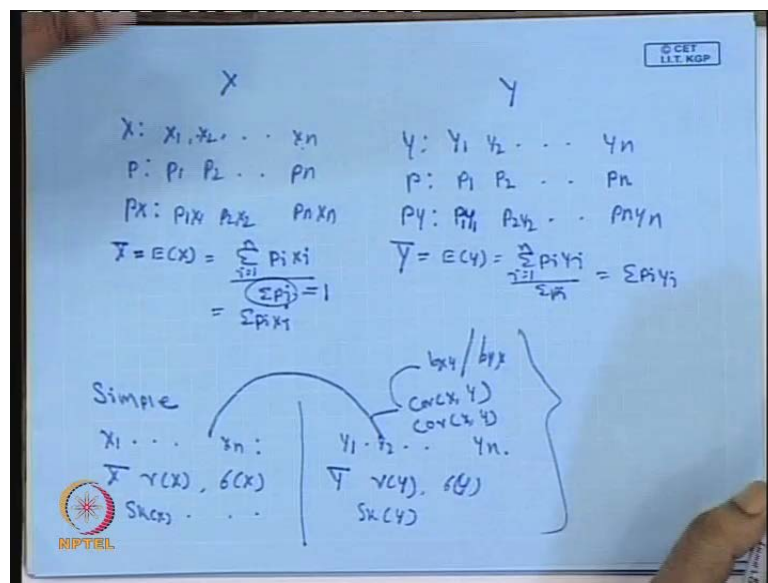 © CET
I.I.T. KGP
X
X: x1, x2, . . . xn
P: P1 P2 . . Pn
PX: P1x1 P2x2 Pnxn
X̄ = E(X) = Σ(i=1 to n) Pixi / ΣPi = 1
= ΣPixi
Y
Y: Y1 Y2 . . . Yn
P: P1 P2 . . Pn
PY: PY1 P2Y2 . . PnYn
Ȳ = E(Y) = Σ(i=1 to n) PiYi / ΣPi = ΣPiYi
Simple
X1 . . . Xn :
X̄ V(X), σ(X)
Sk(X) . . .
bxy / byx
Cor(X, Y)
Cov(X, Y)
Y1 . Y2 . . Yn.
Ȳ V(Y), σ(Y)
Sk(Y)
NPTEL